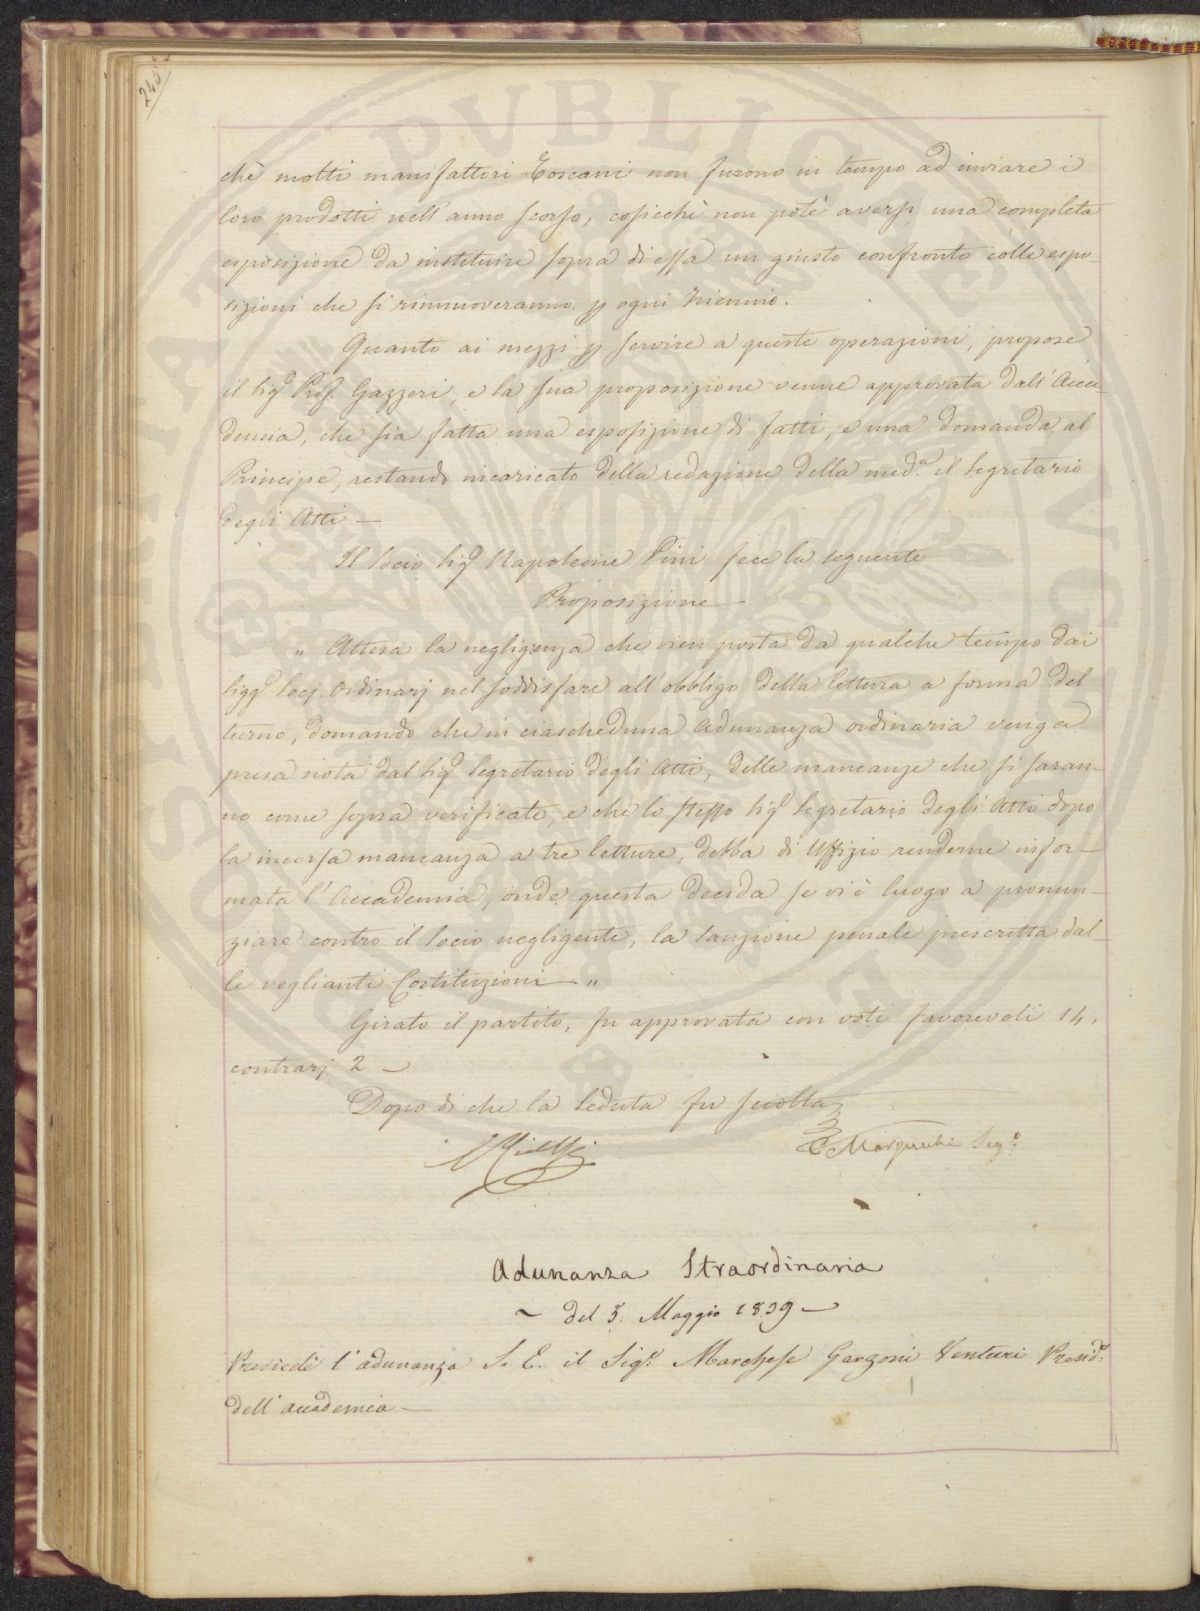 245
chè molti manifattori Toscani non furono in tempo ad inviare i
loro prodotti nell'anno scorso, cosicchè non potè aversi una completa
esposizione da instituire sopra di essa un giusto confronto colle espo-
sizioni che si rinnuoveranno p ogni triennio.
Quanto ai mezzi p servire a queste operazioni, propose
il Sigr Prof. Gazzeri, e la sua proposizione venne approvata dall'Acca
demia, che sia fatta una esposizione di fatti, e una domanda al
Principe, restando incaricato della redazione della meda il Segretario
degli Atti —
Il Socio Sigr Napoleone Pini fece la seguente
Proposizione
„ Attesa la negligenza che vien posta da qualche tempo dai
Sigg.ri Socj Ordinarj nel soddisfare all'obbligo della lettura a forma del
turno, domando che in ciascheduna Adunanza ordinaria venga
presa nota dal Sigr Segretario degli Atti, delle mancanze che si saran-
no come sopra verificate, e che lo stesso Sigr Segretario degli Atti dopo
la incorsa mancanza a tre letture, debba di Uffizio renderne infor-
mata l'Accademia, onde questa decida se vi è luogo a pronun-
ziare contro il Socio negligente, la sanzione penale prescritta dal-
le veglianti Costituzioni — „
Girato il partito, fu approvata con voti favorevoli 14,
contrarj 2 —
Dopo di che la Seduta fu sciolta
Segrio
Adunanza Straordinaria
~ del 5. Maggio 1839 —
Presiedè l'adunanza S. E. il Sigr. Marchese Garzoni Venturi Presid.e
dell'accademia —
PVBLICAE